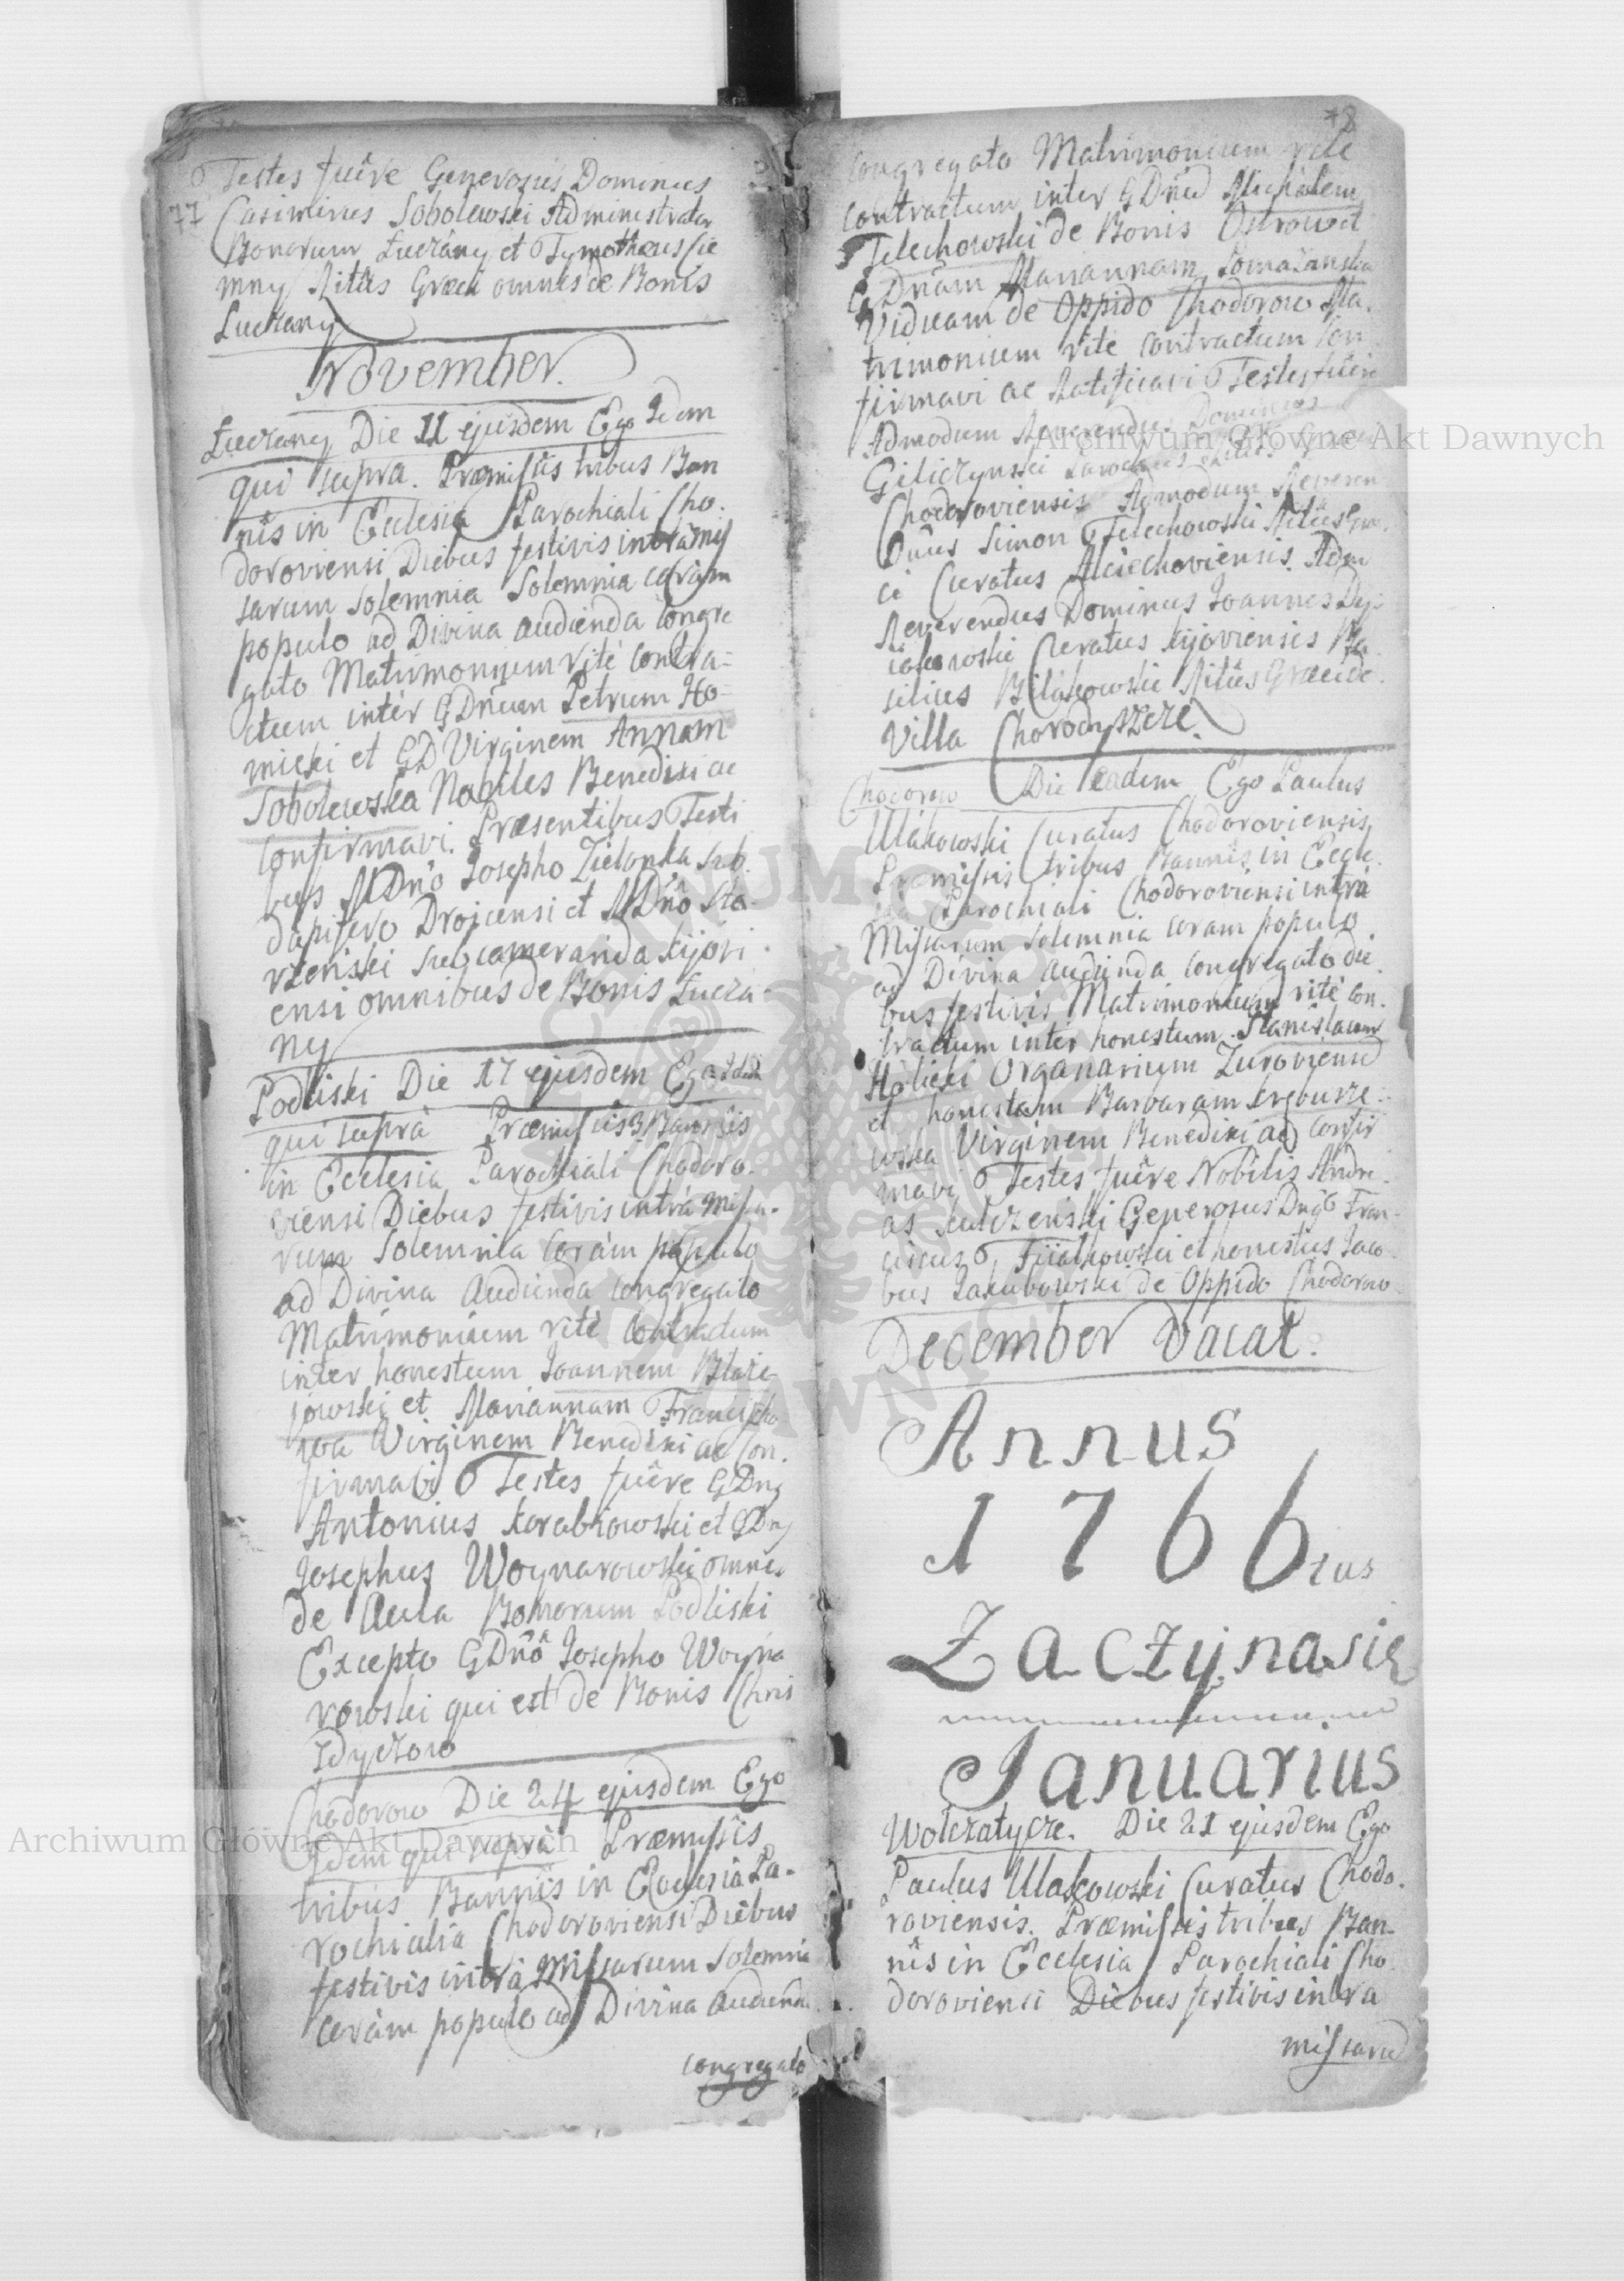 77
Testes fuêre Generosus Dominus
Casimirus Sobolewski Administrator
Bonorum Łuczany et Tymotheus Zie
mny Ritûs Græci omnes de Bonis
Łuczany
November.
Łuczany Die 11 ejusdem Ego Idem
qui supra. Præmissis tribus Ban
nis in Ecclesia Parochiali Cho-
doroviensi Diebus festivis intra Mis
sarum solemnia Solemnia coram
populo ad Divina audienda Congre
gato Matrimonium rité contra-
ctum intér GDnum Petrum Ho-
micki et GD Virginem Annam
Sobolewska Nobiles Benedixi ac
Confirmavi. Præsentibus Testi
bus MDno Josepho Zielonka sub
dapifero Drojcensi et MDno Sta-
rzenski subcameranda Kijovi
ensi omnibus de Bonis Łucza-
ny
Podliski Die 17 ejusdem Ego Idem
qui suprà Præmissis 3 Bannis
in Ecclesia Parochiali Chodoro-
viensi Diebus festivis intrà Missa-
rum Solemnia Coràm populo
ad Divina Audienda congregato
Matrimonium rité Contractum
inter honestum Joannem Błaże-
jowski et Mariannam Francisko
wa Virginem Benedixi ac Con-
firmavi Testes fuêre GDnus
Antonius Korabiowski et GDnus
Josephus Woynarowski omnes
de Aula Bonorum Podliski
Excepto GDno Josepho Woyna
rowski qui est de Bonis Chris
zdyczow
Chodorow Die 24 ejusdem Ego
Idem qui suprà Præmissis
tribus Bannis in Ecclesia Pa-
rochialia Chodoroviensi Diebus
festivis intrà Missarum Solemnia
coràm populo ad Divina audienda
congregato
78
congregato Matrimonium rite
contractum inter GDnum Michalem
Telechowski de Bonis Ostrow et
GDnam Mariannam
Viduam de Oppido Chodorow Ma-
trimonium rité contractum Con
firmavi ac Ratificavi Testes fuere
Admodum Reverendus Dominus
Giliczynski Parochus Ritus Graeci
Chodoroviensis Admodum Reveren
Dnus Simon Telechowski Ritûs Græ-
ci Curatus Adm
Reverendus Dominus Joannes
Curatus Kijoviensis Ba-
silius Bilakowski Ritûs Græci de
Villa Chorodyszcze.
Chodorow Die eadem Ego Paulus
Ulakowski Curatus Chodoroviensis
Præmissis tribus Bannis in Eccle-
sia Parochiali Chodoroviensi intrà
Missarum solemnia coram populo
ad Divina audienda congregato die
bus festivis Matrimonium rité con-
tractum inter honestum Stanislaum
Holicki Organarium Zuroviensem
et honestam Barbaram Sreburze-
wska Virginem Benedixi ac Confir
mavi Testes fuêre Nobilis Andre-
as Kulczenski Generosus Dnus Fran-
ciscus Fijałkowski et honestus Jaco-
bus Jakubowski de Oppido Chodorow
December Vacat.
Annus
1766tus
Zaczynasie
Januarius
Wołczatycze. Die 21 ejusdem Ego
Paulus Ulakowski Curatus Chodo-
roviensis. Præmissis tribus Ban-
nis in Ecclesia Parochiali Cho-
doroviensi Diebus festivis intra
missarum
Archiwum Główne Akt Dawnych
Archiwum Główne Akt Dawnych
ARCHIWUM GŁÓWNE AKT DAWNYCH